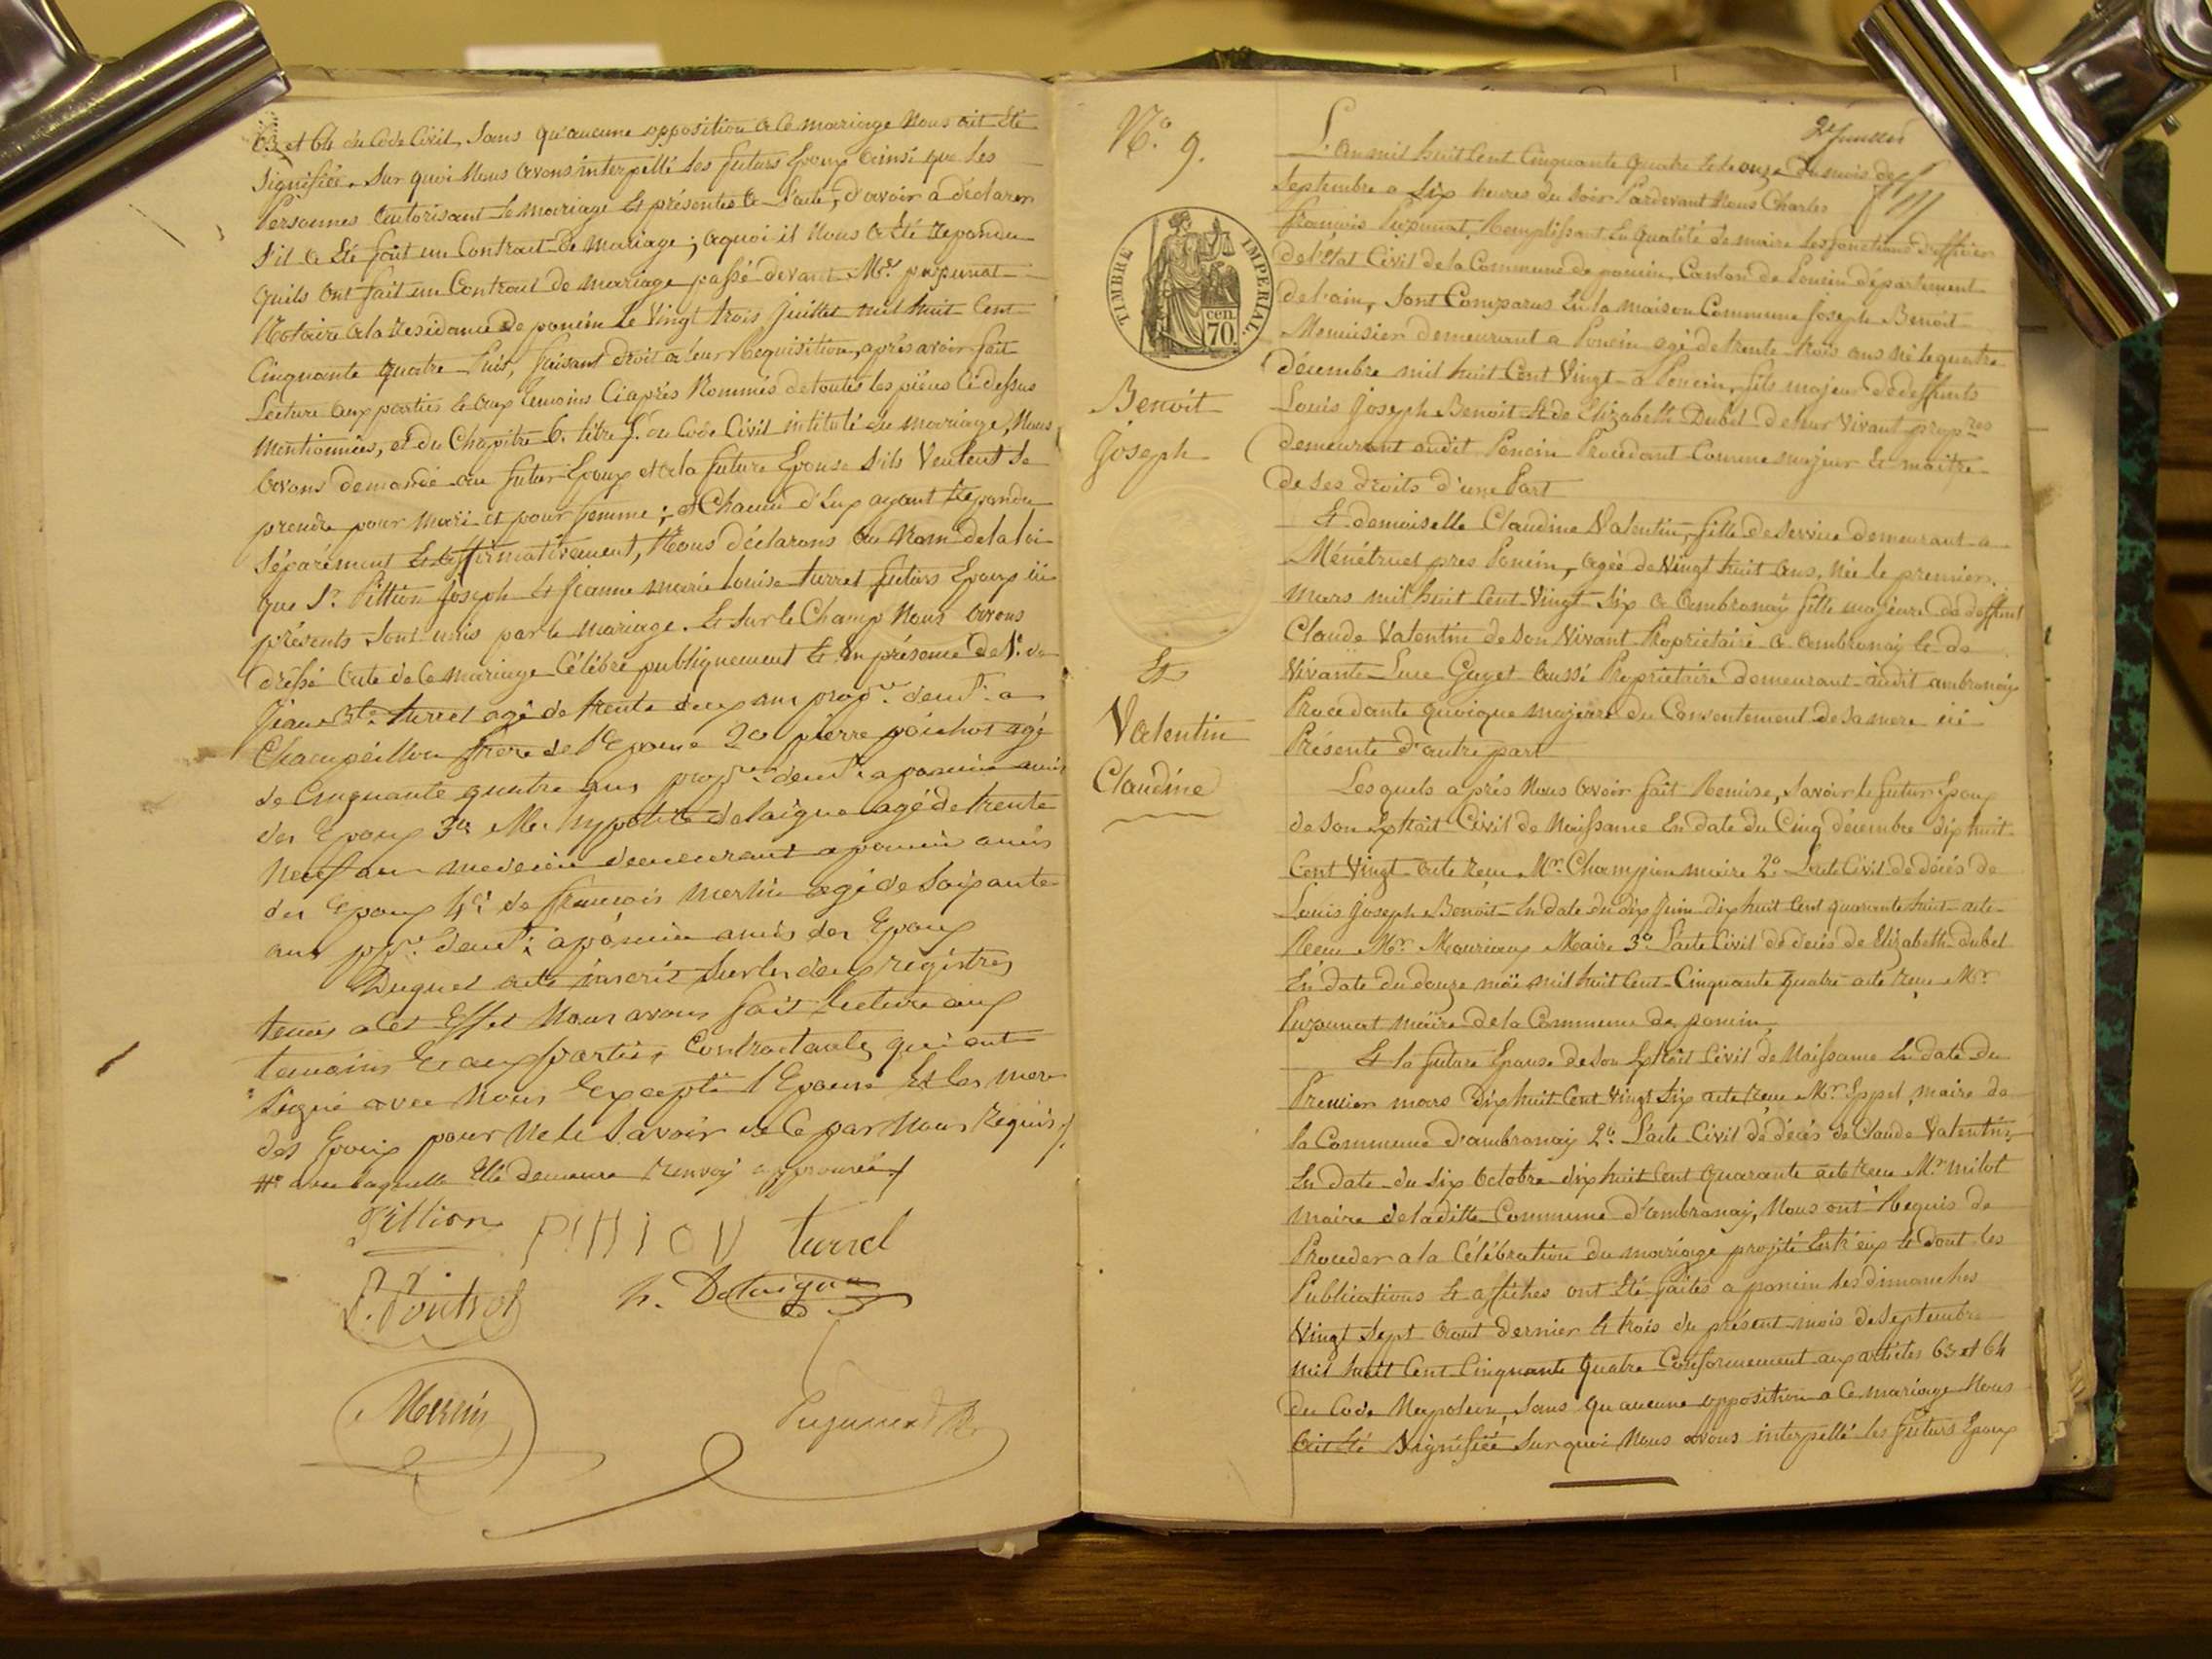 63 et 64 du Code Civil, Sans qu'aucune opposition a ce mariage Nous ait été
Signifiée. Sur quoi Nous avons interpellé les futurs Epoux ainsi que les
Personnes autorisant le mariage et présentes a l'acte, d'avoir a déclarer
s'il a été fait un Contrat de mariage; aquoi il Nous a été repondu
quils ont fait un Contrat de mariage passé devant Me
Notaire a la Residance de poncin le Vingt trois Juillet mil huit Cent
Cinquante quatre Puis, faisant droit a leur Requisition, après avoir fait
Lecture aux parties et aux temoins Ciaprès Nommés de toutes les pièces Ci dessus
Mentionnées, et du Chapitre 6. titre 5. du Code Civil intitulé du mariage, Nous
avons demandé au futur Epoux et a la future Epouse s'ils Veulent se
prendre pour Mari et pour femme; et Chacun d'Eux ayant Repondu
Séparément et affirmativement, Nous déclarons au Nom de la loi
que Sr. Pittion Joseph et Jeanne marie louise turrel futurs Epoux ici
présents sont unis par le mariage. Et sur le Champ Nous avons
dressé acte de ce mariage Célébré publiquement et En présence de 1°. de
Jean Bte. turrel agé de trente deux ans propre. demt. a
Champeillon frère de l'Epouse 2° pierre agé
de Cinquante quatre ans propre. demt. a poncin amis
des Epoux 3° Mr. hypolite delaigue agé de trente
Neuf ans medecin demeurant a poncin amis
des Epoux 4° de françois agé de Soixante
ans demt. a poncin amis des Epoux
Duquel acte inscrit sur les deux régistres
tenus a cet Effet Nous avons fait lecture aux
temoins Et aux parties Contractantes qui ont
Signé avec Nous Excepté l'Epouse Et les mere
des Epoux pour Ne le Savoir de Ce par Nous Requis
avec laquelle Elle demeure Renvoi approuvé
Pittion PittiON turrel
h. Delaigue
2e feuillet
No. 9.
L'an mil huit Cent Cinquante quatre et le onze du mois de
Septembre a Six heures du Soir Pardevant Nous Charles
françois Remplissant En qualité de maire les fonctions d'officier
de l'Etat Civil de la Commune de poncin, Canton de Poncin département
de l'ain, Sont Comparus En la maison Commune Joseph Benoit
TIMBRE IMPERIAL.
cen. 70.
Menuisier demeurant a Poncin agé de trente trois ans né le quatre
décembre mil huit Cent Vingt a Poncin, fils majeur de deffunts
Benoit
Louis Joseph Benoit et de Elizabeth Dubel de leur Vivant propres
Joseph
demeurant audit Poncin Procedant Comme majeur et maitre
de ses droits d'une Part
Et demoiselle Claudine Valentin, fille de service demeurant a
Ménétruel pres Poncin, agée de Vingt huit ans, Née le premier
Mars mil huit Cent Vingt Six a ambronay fille majeure de deffunt
Claude Valentin de son Vivant Proprietaire a ambronay et de
Et
Vivante Guyet aussi Proprietaire demeurant audit ambronay
Valentin
Procedante quoique majeure du Consentement de sa mere ici
Présente d'autre part
Claudine
Lesquels après Nous avoir fait Remise, Savoir le futur Epoux
de son Extrait Civil de Naissance En date du Cinq décembre dix huit
Cent Vingt acte reçu Mr. Champion maire 2° L'acte Civil de décès de
Louis Joseph Benoit En date du dix Juin dix huit Cent quarante huit acte
Reçu Mr. Maire 3° L'acte Civil de décès de Elizabeth dubel
En date du douze mai mil huit Cent Cinquante quatre acte reçu Mr.
maire de la Commune de poncin,
Et la future Epouse de son Extrait Civil de Naissance En date du
Premier mars Dix huit Cent Vingt Six acte reçu Mr. maire de
la Commune d'ambronay 2°. L'acte Civil de décès de Claude Valentin
En date du Six Octobre dix huit Cent quarante acte reçu Mr. milot
maire de la ditte Commune d'ambronay, Nous ont Requis de
Proceder a la Célébration du mariage projeté Entr'eux et dont les
Publications et affiches ont été faites a poncin les dimanches
Vingt Sept aout dernier et trois du présent mois de Septembre
mil huit Cent Cinquante quatre Conformement aux articles 63 et 64
du Code Napoleon, Sans qu'aucune opposition a Ce mariage Nous
ait été Signifiée Sur quoi Nous avons interpellé les futurs Epoux